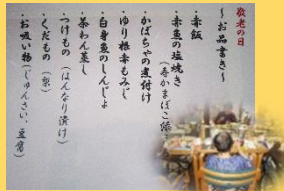 敬老の日
～お品書き～
・赤飯
・赤魚の塩焼き
(寿かまぼこ添え)
・かぼちゃの煮付け
・ゆり根赤もみじ
・白身魚のしんじょ
・茶わん蒸し
・つけもの(はんなり漬け)
・くだもの(梨)
・お吸い物(じゅんさい、豆腐)